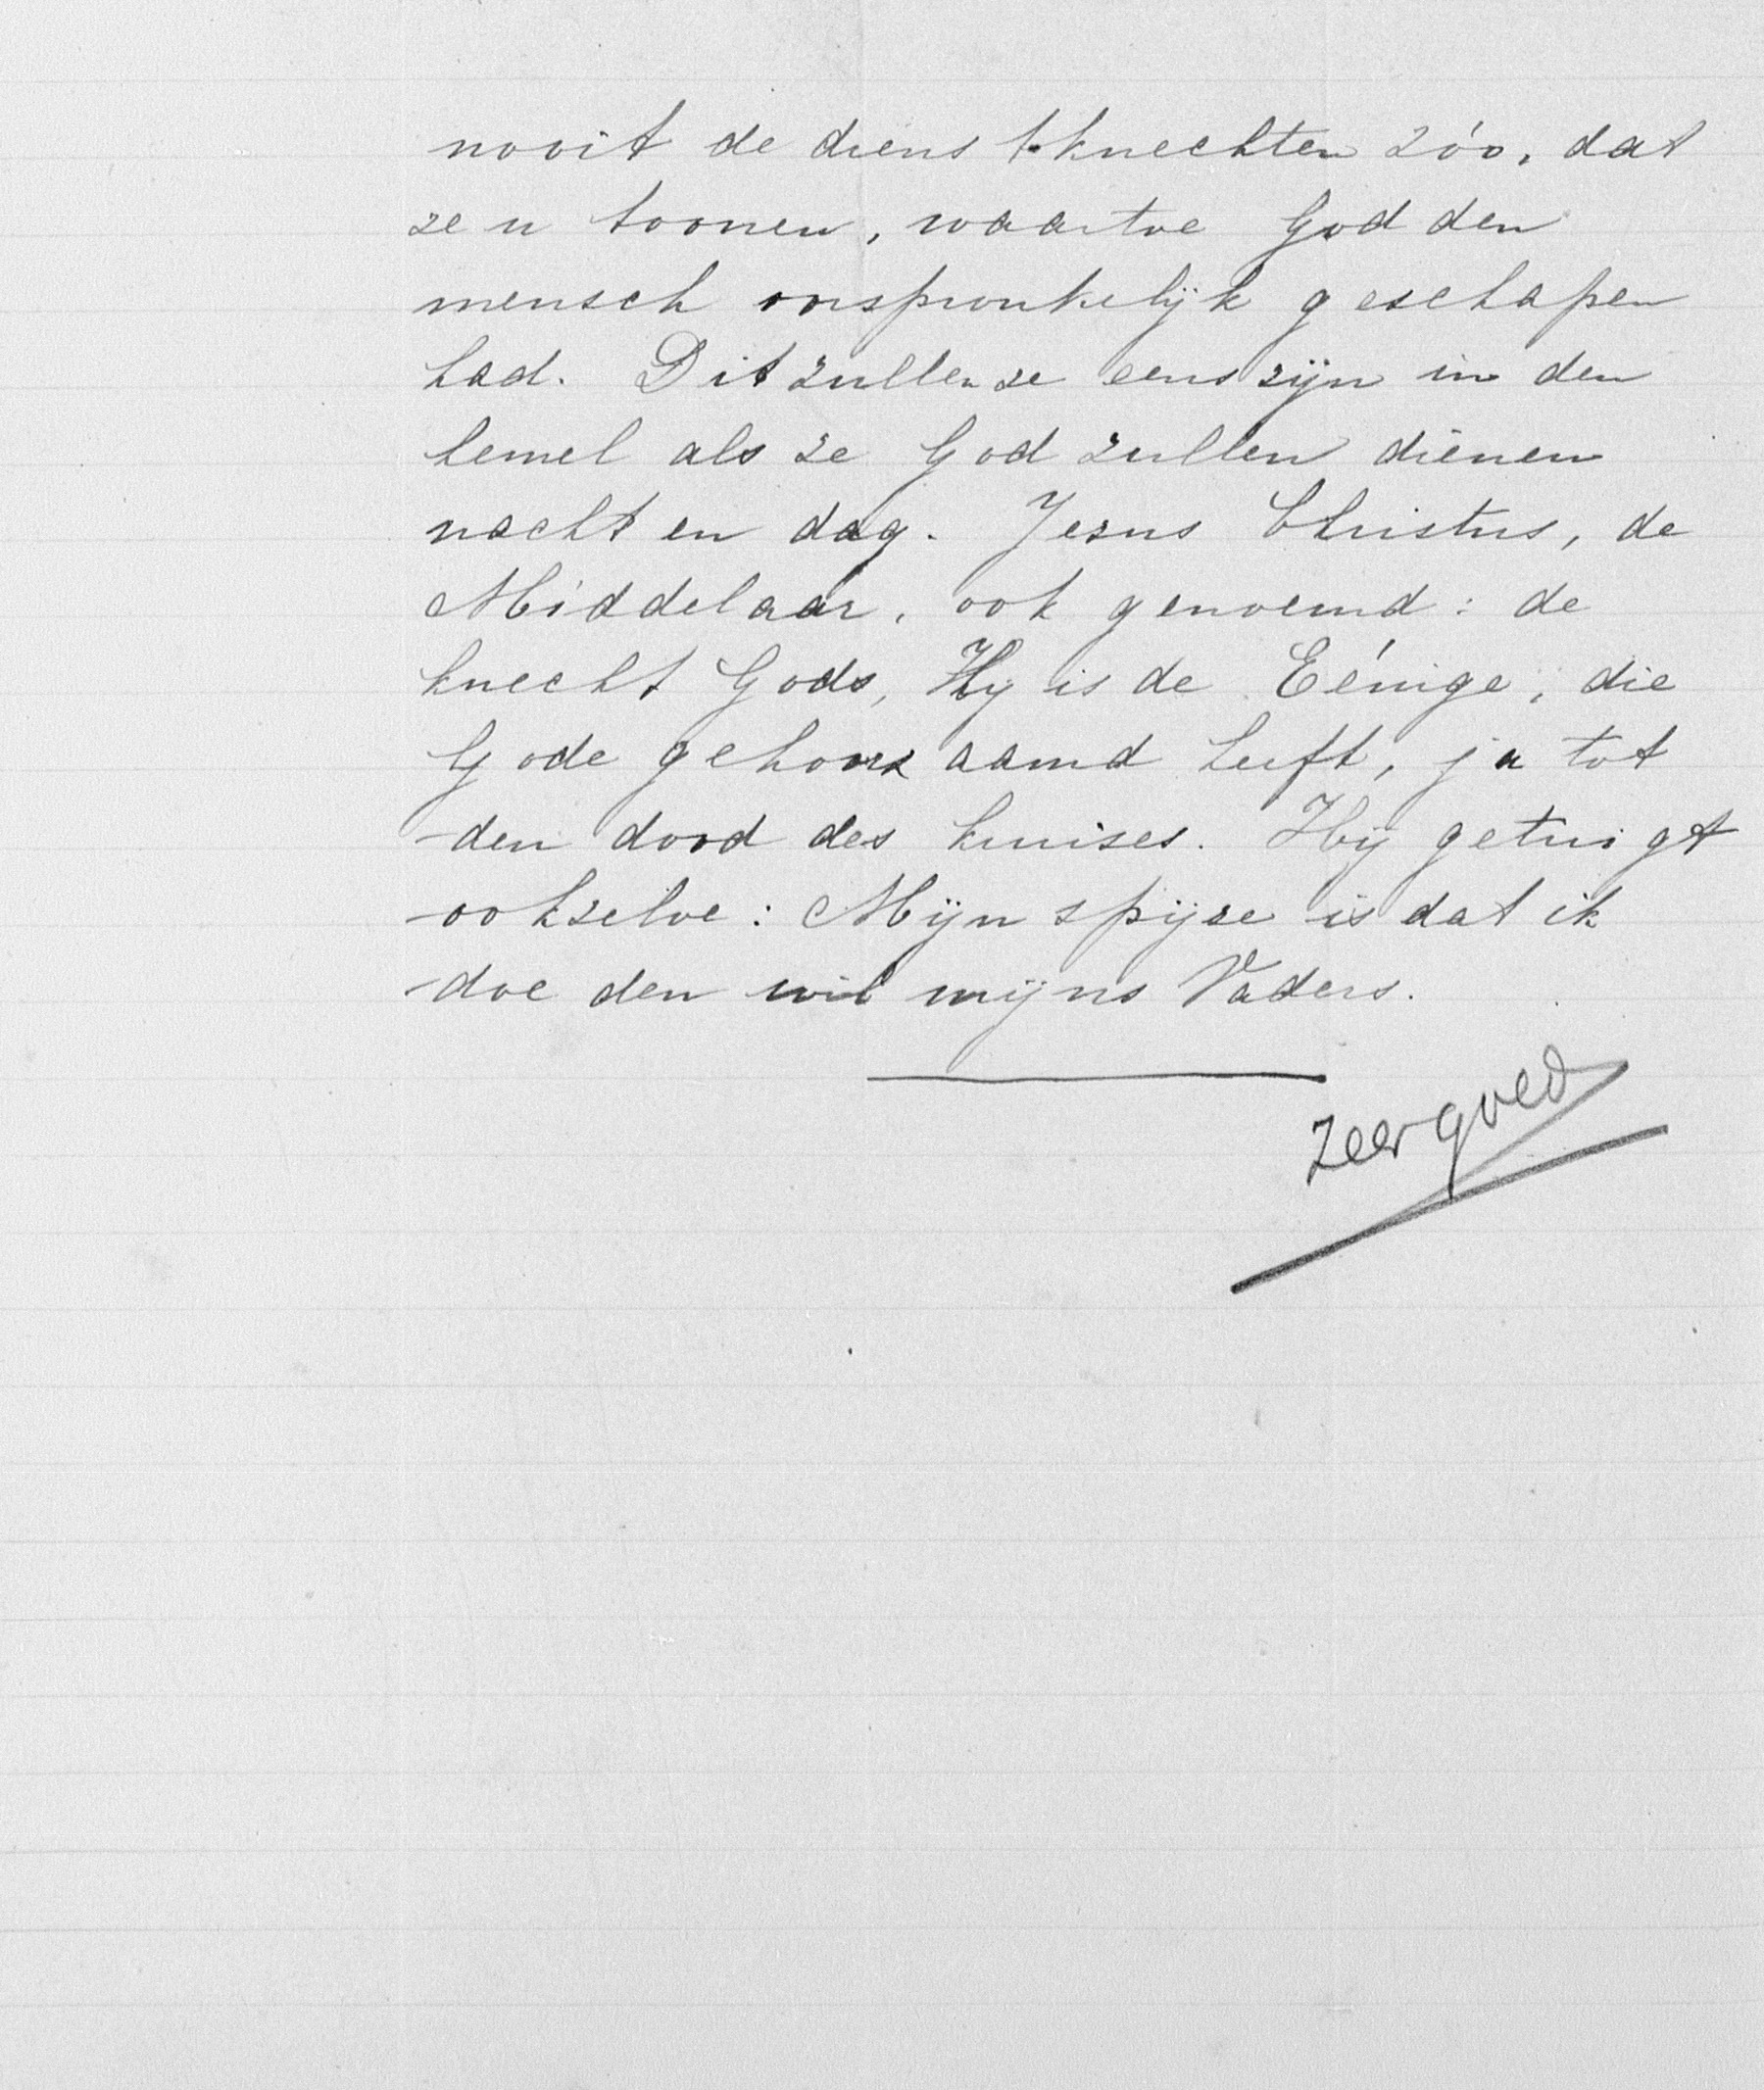 nooit de dienstknechten zóo, dat
ze u toonen, waartoe God den
mensch oorspronkelijk geschapen
had. Dit zullen ze eens zijn in den
hemel als ze God zullen dienen
nacht en dag. Jezus Christus, de
Middelaar, ook genoemd: de
knecht Gods, Hij is de Eénige, die
Gode gehoorzaamd heeft, ja tot
den dood des kruises. Hij getuigt
ook zelve: Mijn spijze is dat ik
doe den wil mijns Vaders.
zeer goed